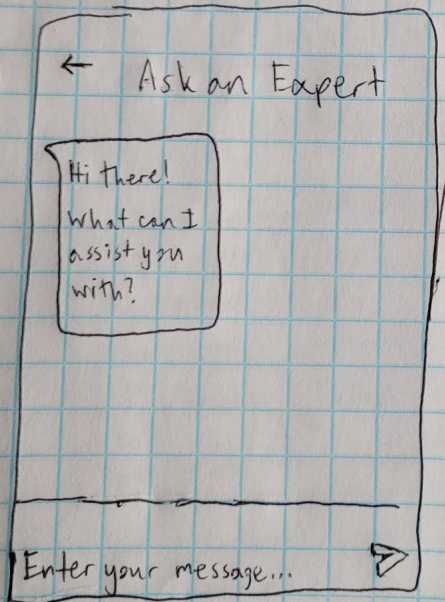 ← Ask an Expert
Hi there!
What can I
assist you
with?
Enter your message...